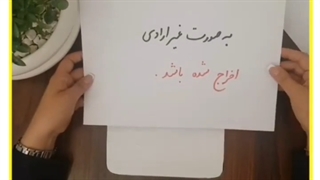 به صورت غیر ارادی
اخراج شده باشد.